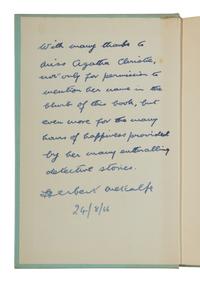 With many thanks to
Miss Agatha Christie,
not only for permission to
mention her name in the
blurb of this book, but
even more for the many
hours of happiness provided
by her many enthralling
detective stories.
Herbert Metcalfe
24/8/66